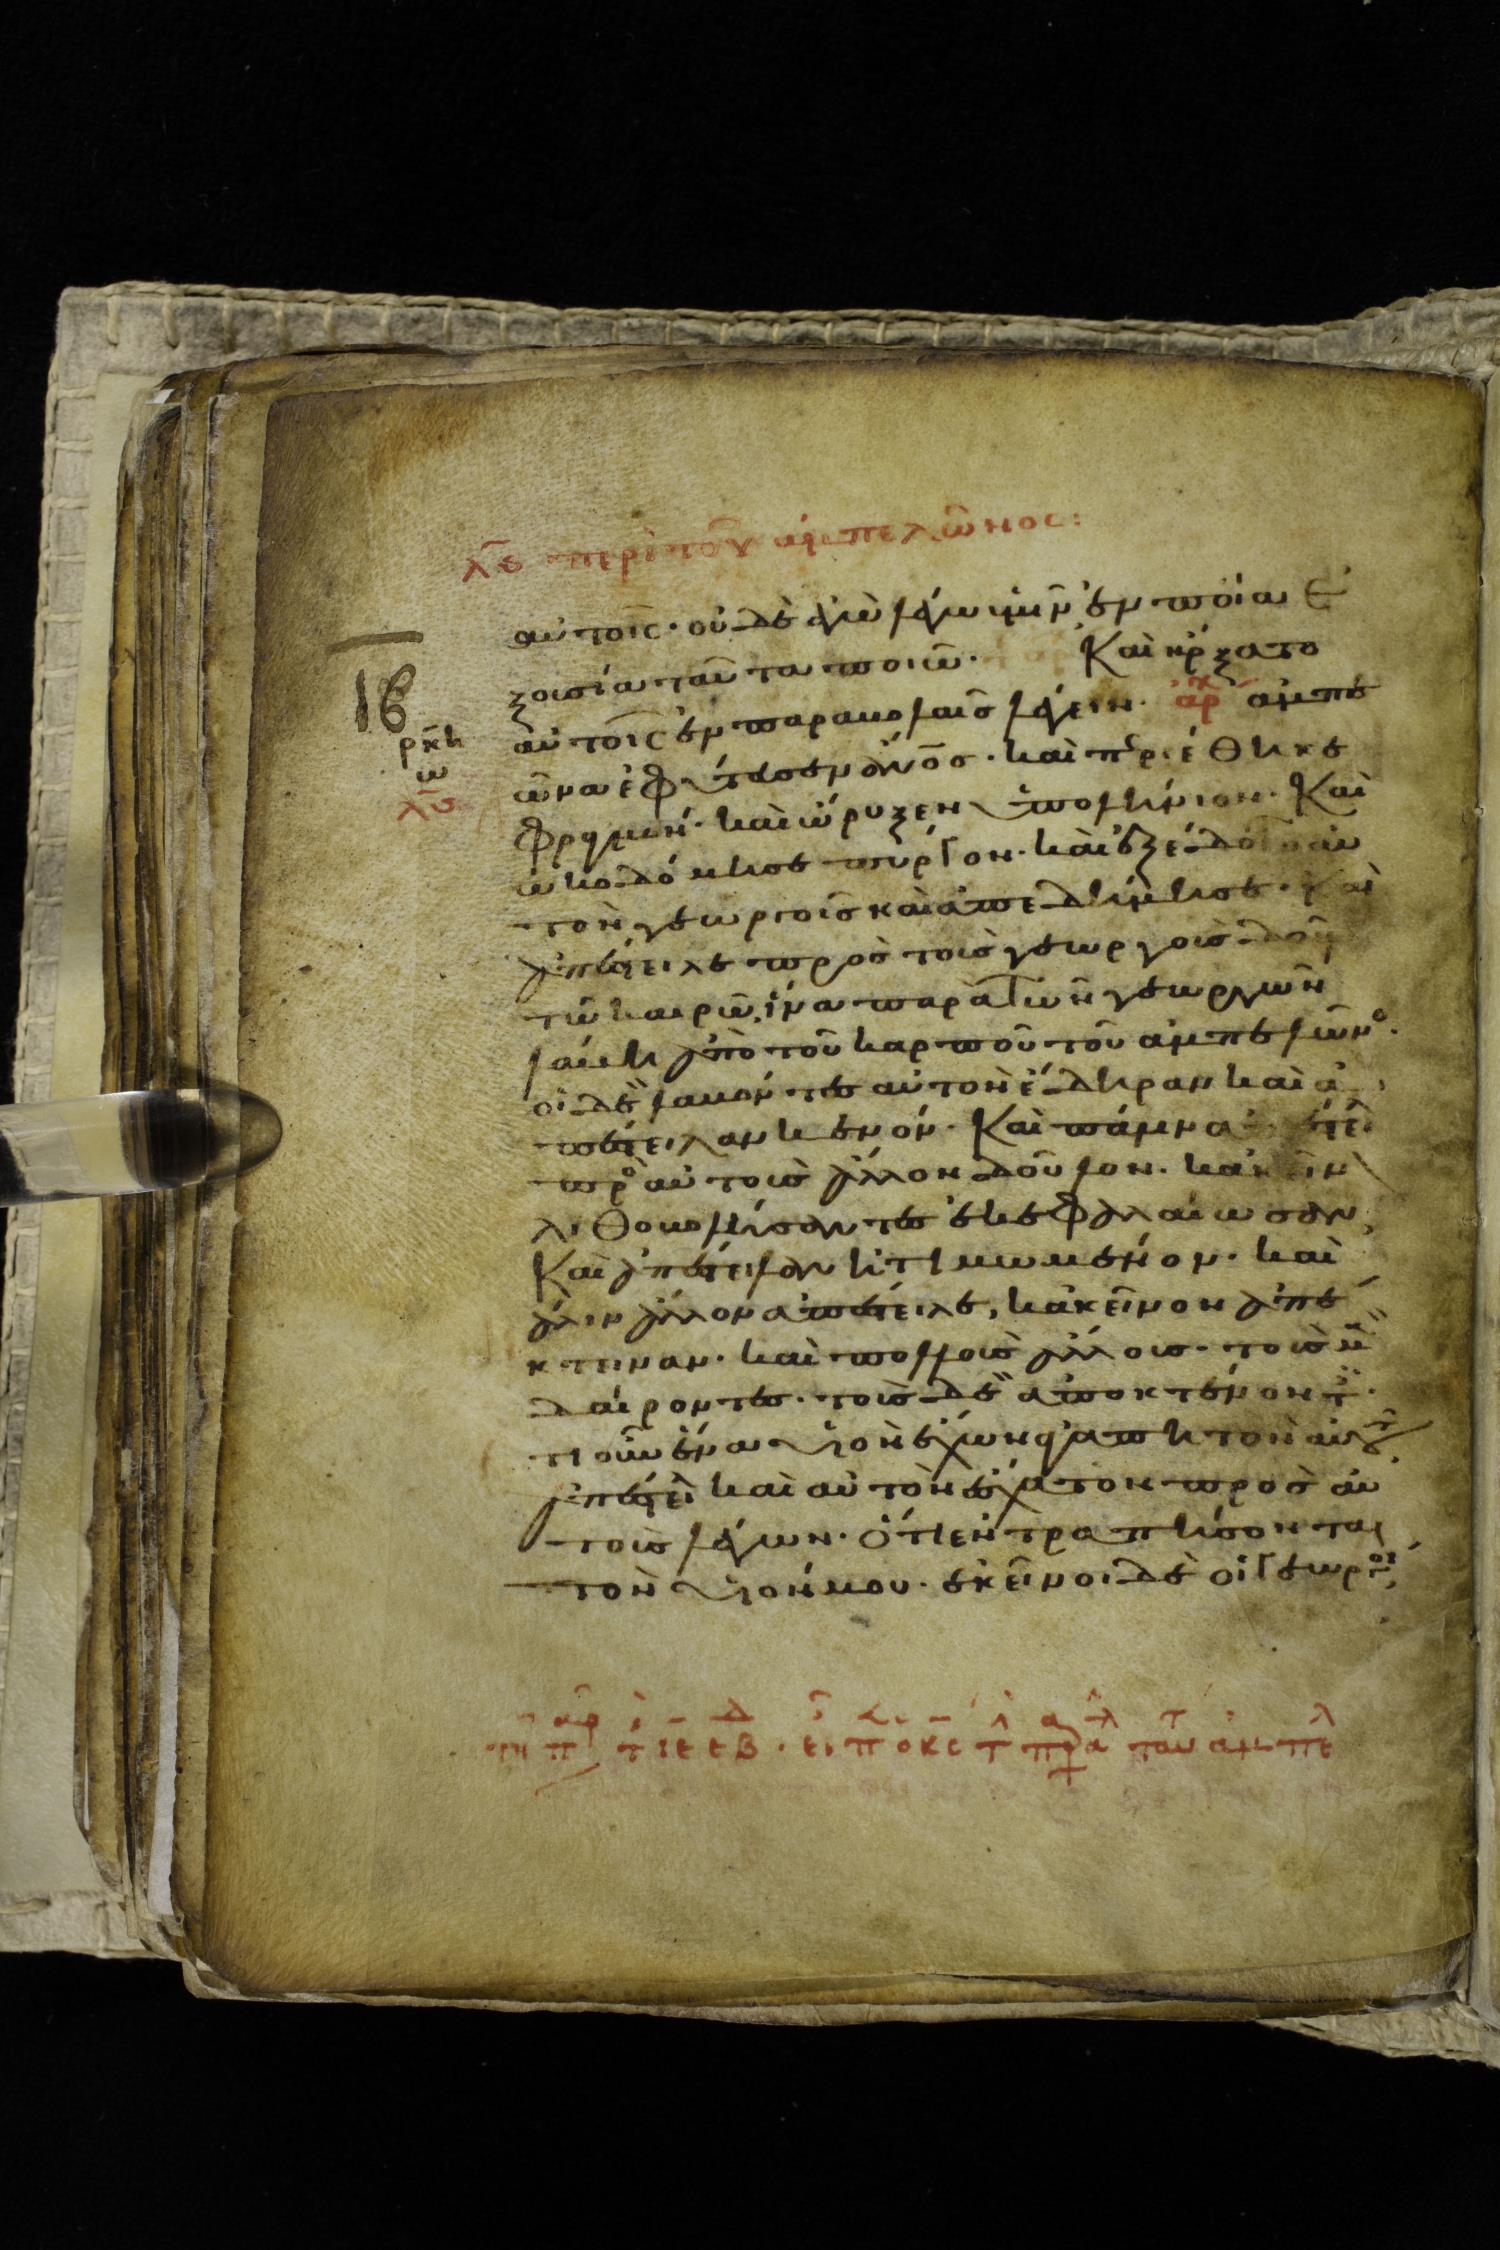 λς περὶ τοῦ ἀμπελῶνος:
αὐτοῖς· οὐδὲ ἐγὼ λέγω ὑμῖν ἐν ποία ἐ
ξουσία ταῦτα ποιῶ. Καὶ ἤρξατο
αὐτοῖς ἐν παραβολαῖς λέγειν· ἀρχ ἀμπε
ῶνα ἐφύτευσεν ἄνος· καὶ περιέθηκε
φραγμόν· καὶ ὤρυξεν ὑπολήνιον· Καὶ
ὠκοδόμησε πύργον· καὶ ἐξέδοτο αὐ
τὸν γεωργοῖς καὶ ἀπεδήμησε· Καὶ
ἀπέστειλε πρὸς τοὺς γεωργοὺς
τῶ καιρῶ, ἵνα παρὰ τῶν γεωργῶν
λάβη ἀπὸ τοῦ καρποῦ τοῦ ἀμπελῶνο.
οἱ δὲ λαβόντες αὐτὸν ἔδηραν καὶ ἀ
πέστειλαν κενόν· Καὶ πάλιν
πρὸ αὐτοὺς ἄλλον δοῦλον· κακεῖν
λιθοβολήσαντες ἐκεφαλαίωσαν,
Καὶ ἀπέστειλαν ἠτιμωμένον· καὶ
άλιν ἄλλον ἀπέστειλε, κἀκεῖνον ἀπέ
κτειναν· καὶ πολλοὺς ἄλλους· τοὺς μὲ
δαίροντες· τοὺς δὲ ἀποκτένοντ.
τι οὖν ἕνα υἱὸν ἔχων ἀγαπητὸν αὐτ
ἀπέστει καὶ αὐτὸν ἔσχατον πρὸς αὐ
τοὺς λέγων· ὅτι ἐντραπήσονται
τὸν υἱόν μου· ἐκεῖνοι δὲ οἱ γεωργοὶ
16
ρκη
ω
λς